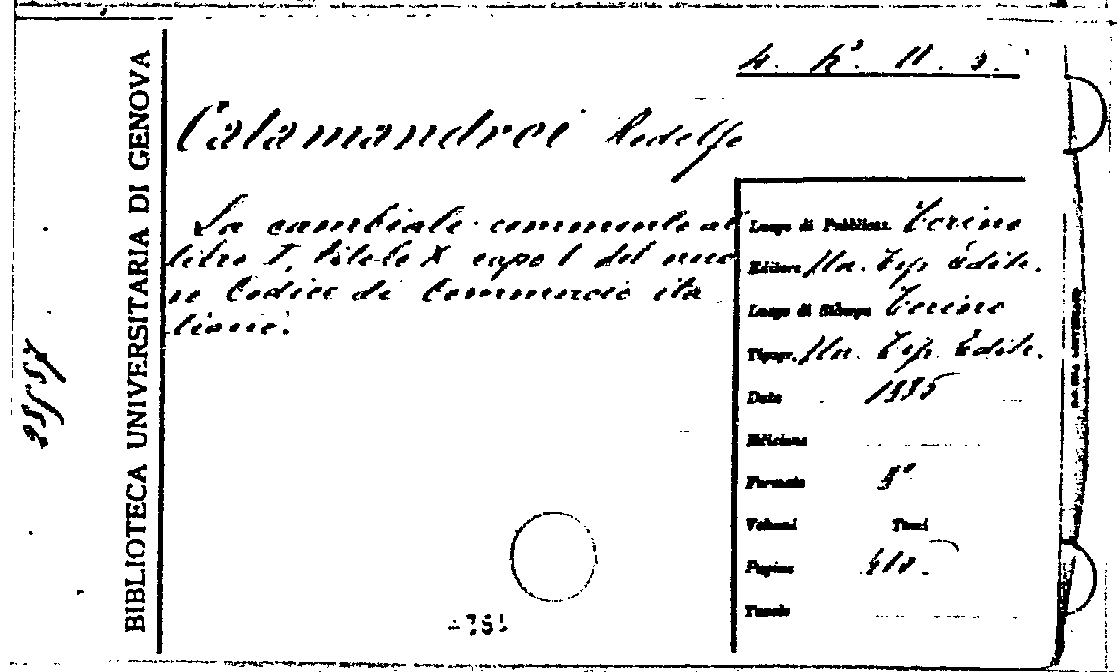 BIBLIOTECA UNIVERSITARIA DI GENOVA
Calamandrei Rodolfo
La cambiale commento al
libro I, titolo X capo I del nuo
vo Codice di Commercio ita
liano.
Luogo di Pubblicaz. Torino
Editore Un. Tip. Edit.
Luogo di Stampa Torino
Tipogr. Un. Tip. Edit.
Data
Edizione
Formato 8°
Volumi Tomi
Pagine
Tavole